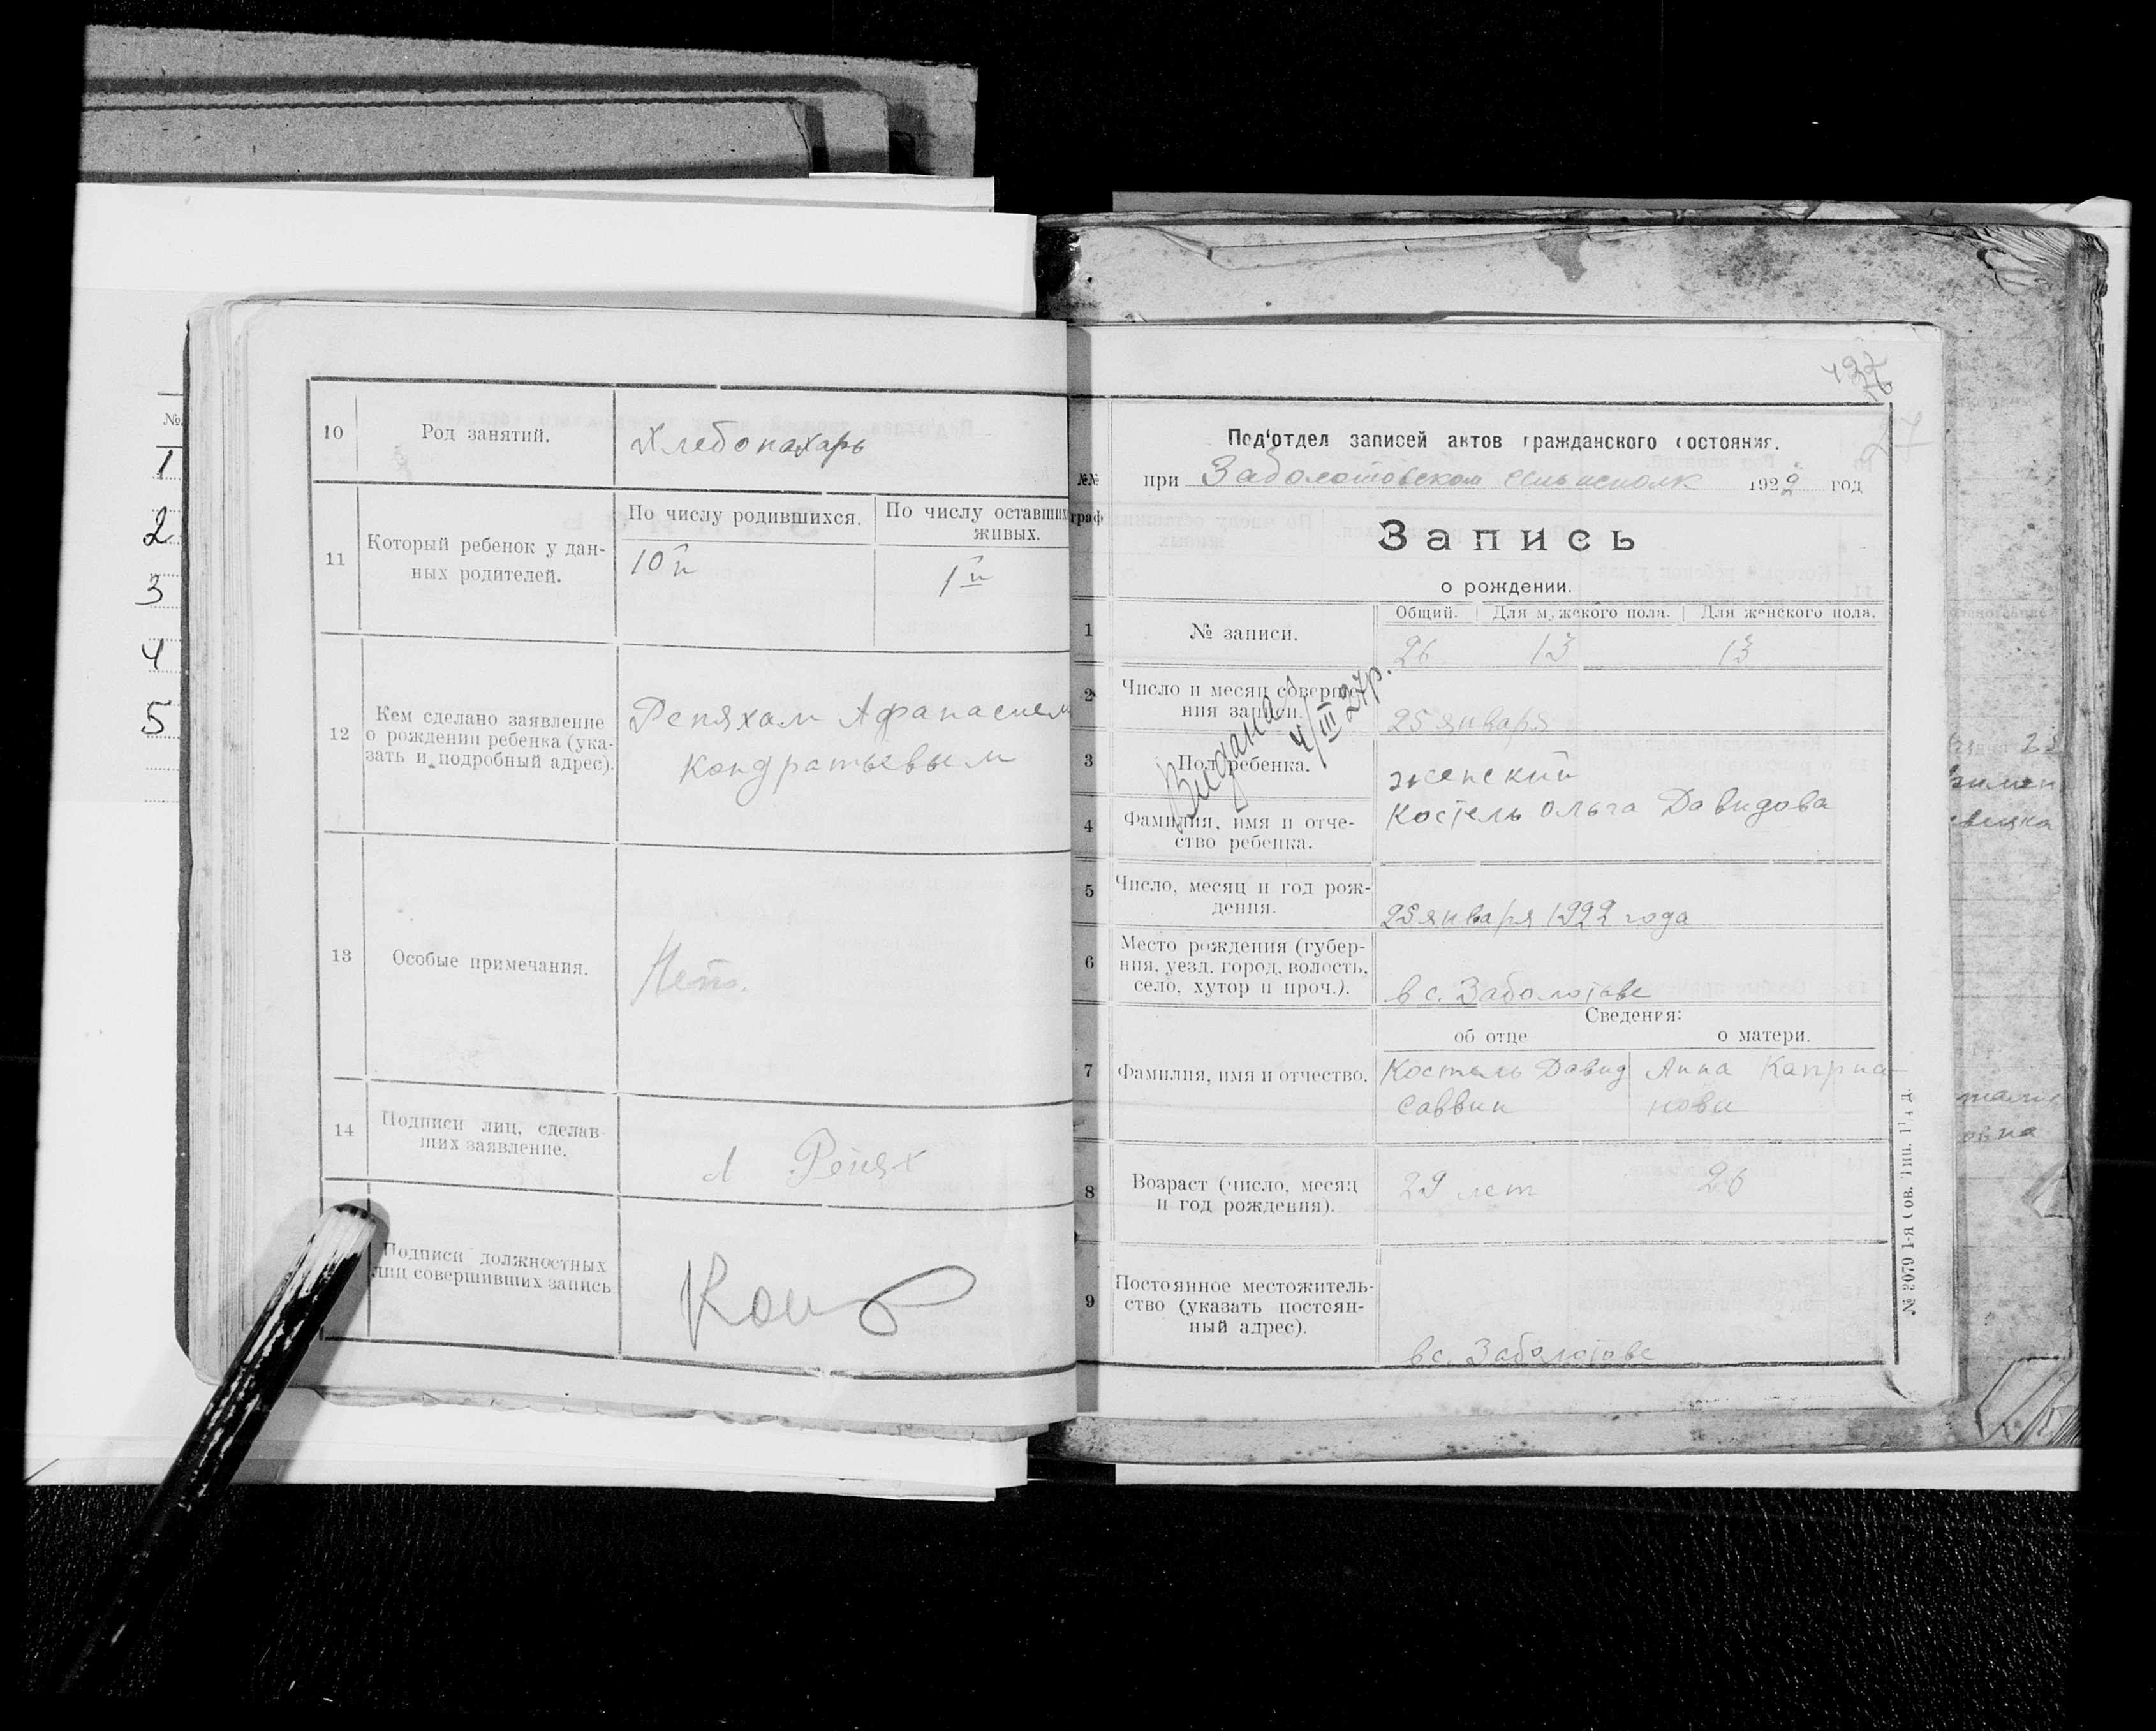 №
1
2
3
4
5
10
Род занятий.
Хлебопахарь
11
Который ребенок у дан-
ных родителей.
По числу родившихся.
По числу оставших
живых.
10й
1й
12
Кем сделано заявление
о рождении ребенка (ука-
зать и подробный адрес).
Репяхом Афанасием
Кондратьевым
13
Особые примечания.
Нет.
14
Подписи лиц, сделав-
ших заявление.
А Репях
Подписи должностных
лиц совершивших запись
27
Под'отдел записей актов гражданского состояния.
№№
граф
при Заболотовском сельисполк 1922 год
Запись
о рождении.
1
№ записи.
Общий. Для мужского пола. Для женского пола.
26 13 13
2
Число и месяц соверше-
ния записи.
25 января
Видана 4/III 27р.
3
Пол ребенка.
женский
4
Фамилия, имя и отче-
ство ребенка.
Костель Ольга Давидова
5
Число, месяц и год рож-
дения.
25 января 1922 года
6
Место рождения (губер-
ния, уезд, город, волость,
село, хутор и проч.).
в с. Заболотове
Сведения:
об отце о матери.
7
Фамилия, имя и отчество.
Костель Давид
Саввин
Анна Каприа-
нова
8
Возраст (число, месяц
и год рождения).
29 лет 26
9
Постоянное местожитель-
ство (указать постоян-
ный адрес).
в с. Заболотове